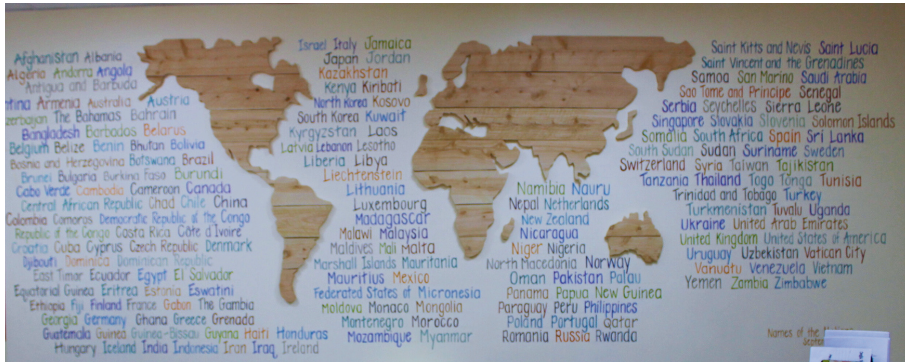 Afghanistan Albania
Algeria Andorra Angola
Antigua and Barbuda
Armenia Australia Austria
The Bahamas Bahrain
Bangladesh Barbados Belarus
Belgium Belize Benin Bhutan Bolivia
Bosnia and Herzegovina Botswana Brazil
Brunei Bulgaria Burkina Faso Burundi
Cabo Verde Cambodia Cameroon Canada
Central African Republic Chad Chile China
Colombia Comoros Democratic Republic of the Congo
Republic of the Congo Costa Rica Côte d'Ivoire
Croatia Cuba Cyprus Czech Republic Denmark
Djibouti Dominica Dominican Republic
East Timor Ecuador Egypt El Salvador
Equatorial Guinea Eritrea Estonia Eswatini
Ethiopia Fiji Finland France Gabon The Gambia
Georgia Germany Ghana Greece Grenada
Guatemala Guinea Guinea-Bissau Guyana Haiti Honduras
Hungary Iceland India Indonesia Iran Iraq Ireland
Israel Italy Jamaica
Japan Jordan
Kazakhstan
Kenya Kiribati
North Korea Kosovo
South Korea Kuwait
Kyrgyzstan Laos
Latvia Lebanon Lesotho
Liberia Libya
Liechtenstein
Lithuania
Luxembourg
Madagascar
Malawi Malaysia
Maldives Mali Malta
Marshall Islands Mauritania
Mauritius Mexico
Federated States of Micronesia
Moldova Monaco Mongolia
Montenegro Morocco
Mozambique Myanmar
Namibia Nauru
Nepal Netherlands
New Zealand
Nicaragua
Niger Nigeria
North Macedonia Norway
Oman Pakistan Palau
Panama Papua New Guinea
Paraguay Peru Philippines
Poland Portugal Qatar
Romania Russia Rwanda
Saint Kitts and Nevis Saint Lucia
Saint Vincent and the Grenadines
Samoa San Marino Saudi Arabia
Sao Tome and Principe Senegal
Serbia Seychelles Sierra Leone
Singapore Slovakia Slovenia Solomon Islands
Somalia South Africa Spain Sri Lanka
South Sudan Sudan Suriname Sweden
Switzerland Syria Taiwan Tajikistan
Tanzania Thailand Togo Tonga Tunisia
Trinidad and Tobago Turkey
Turkmenistan Tuvalu Uganda
Ukraine United Arab Emirates
United Kingdom United States of America
Uruguay Uzbekistan Vatican City
Vanuatu Venezuela Vietnam
Yemen Zambia Zimbabwe
Names of the